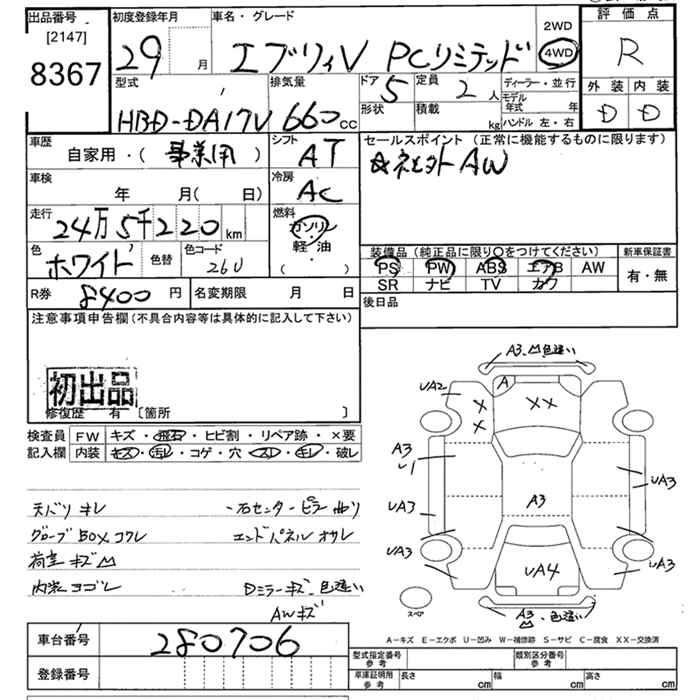 出品番号
[2147]
8367
初度登録年月
29 月
車名・グレード
エブリィV PCリミテッド
2WD
4WD
評価点
R
外装 内装
D D
型式
HBD-DA17V
排気量
660 cc
ドア
5
形状
定員
2 人
積載
kg
ディーラー・並行
モデル年式 年
ハンドル 左・右
車歴
自家用・( 事業用 )
シフト
AT
セールスポイント (正常に機能するものに限ります)
車検
年 月( 日)
冷房
AC
走行
24万5千220 km
燃料
ガソリン
軽・油
( )
色
ホワイト
色替
色コード
26U
装備品 (純正品に限り○をつけてください)
PS PW ABS エアB AW
SR ナビ TV カワ
新車保証書
有・無
R券 8400 円
名変期限 月 日
後日品
注意事項申告欄 (不具合内容等は具体的に記入して下さい)
初出品
修復歴 有 〔箇所 〕
検査員記入欄
FW キズ・飛石・ヒビ割・リペア跡・×要
内装 キズ・汚レ・コゲ・穴・スレ・キレ・破レ
天バリ キレ
グローブBOX コワレ
荷室 キズ凹
内装 ヨゴレ
右センターピラー曲り
エンドパネル オサレ
Dミラーキズ、色違い
AWキズ
A3、凹 色違い
UA2
A
X
X
XX
A3
U1
UA3
UA3
A3
UA3
UA3
UA4
スペア
A3
凹、色違い
A−キズ E−エクボ U−凹み W−補修跡 S−サビ C−腐食 XX−交換済
車台番号 280706
登録番号
型式指定番号
参考
類別区分番号
参考
車庫証明用
参考
長さ cm 幅 cm 高さ cm